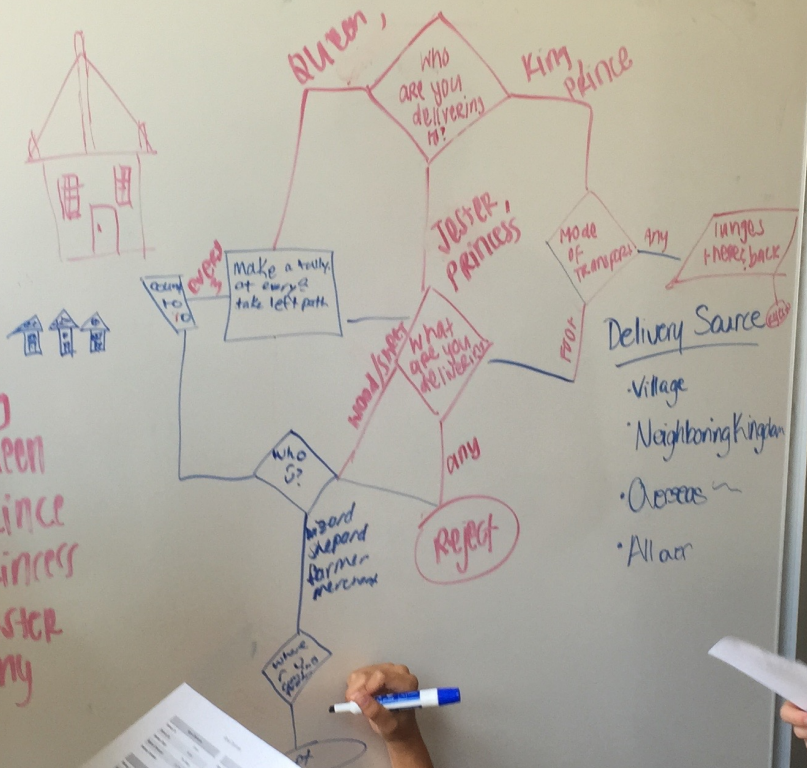 Queen,
Who
are you
delivering
King
Prince
Jester,
Princess
Mode
OF
Transport
Any
lunges
there
back
every
Make a tally
at every
take left path
count
to
10
what
are you
delivering
wood/
Foot
any
Reject
Who
wizard
shepard
farmer
merchant
where
Delivery Source
•Village
•Neighboring Kingdom
•Overseas
•All
een
ince
incess
ster
ny